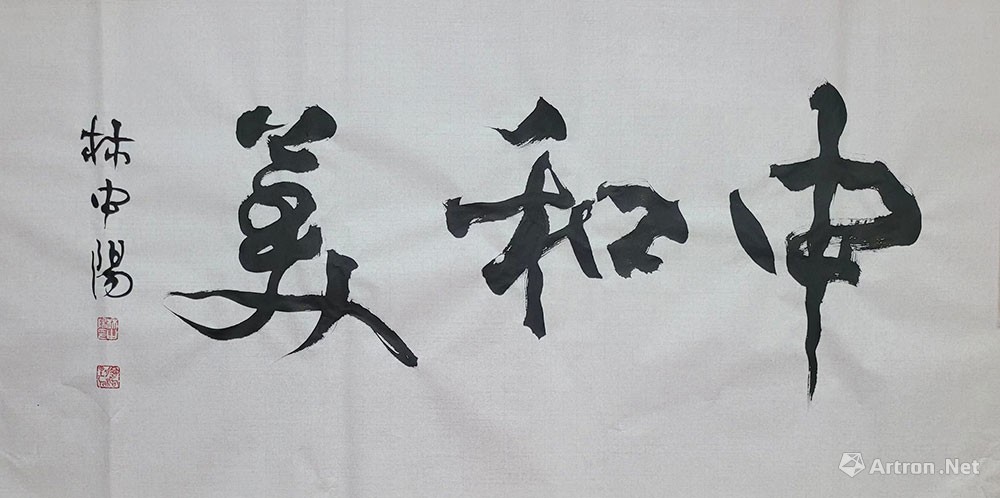 中和美
林中陽
Artron.Net